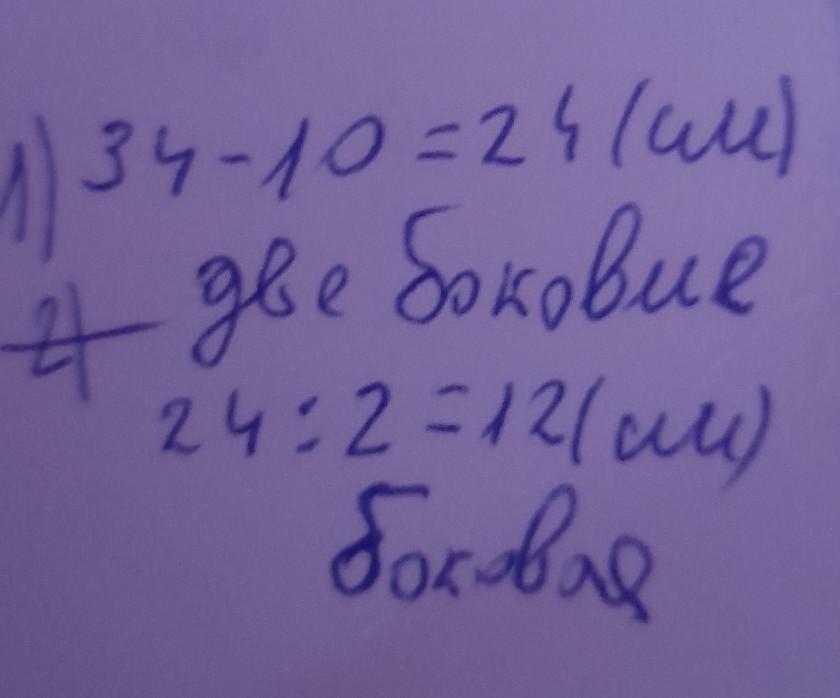 1) 34-10=24(см)
две боковие
2)
24:2=12(см)
боковая